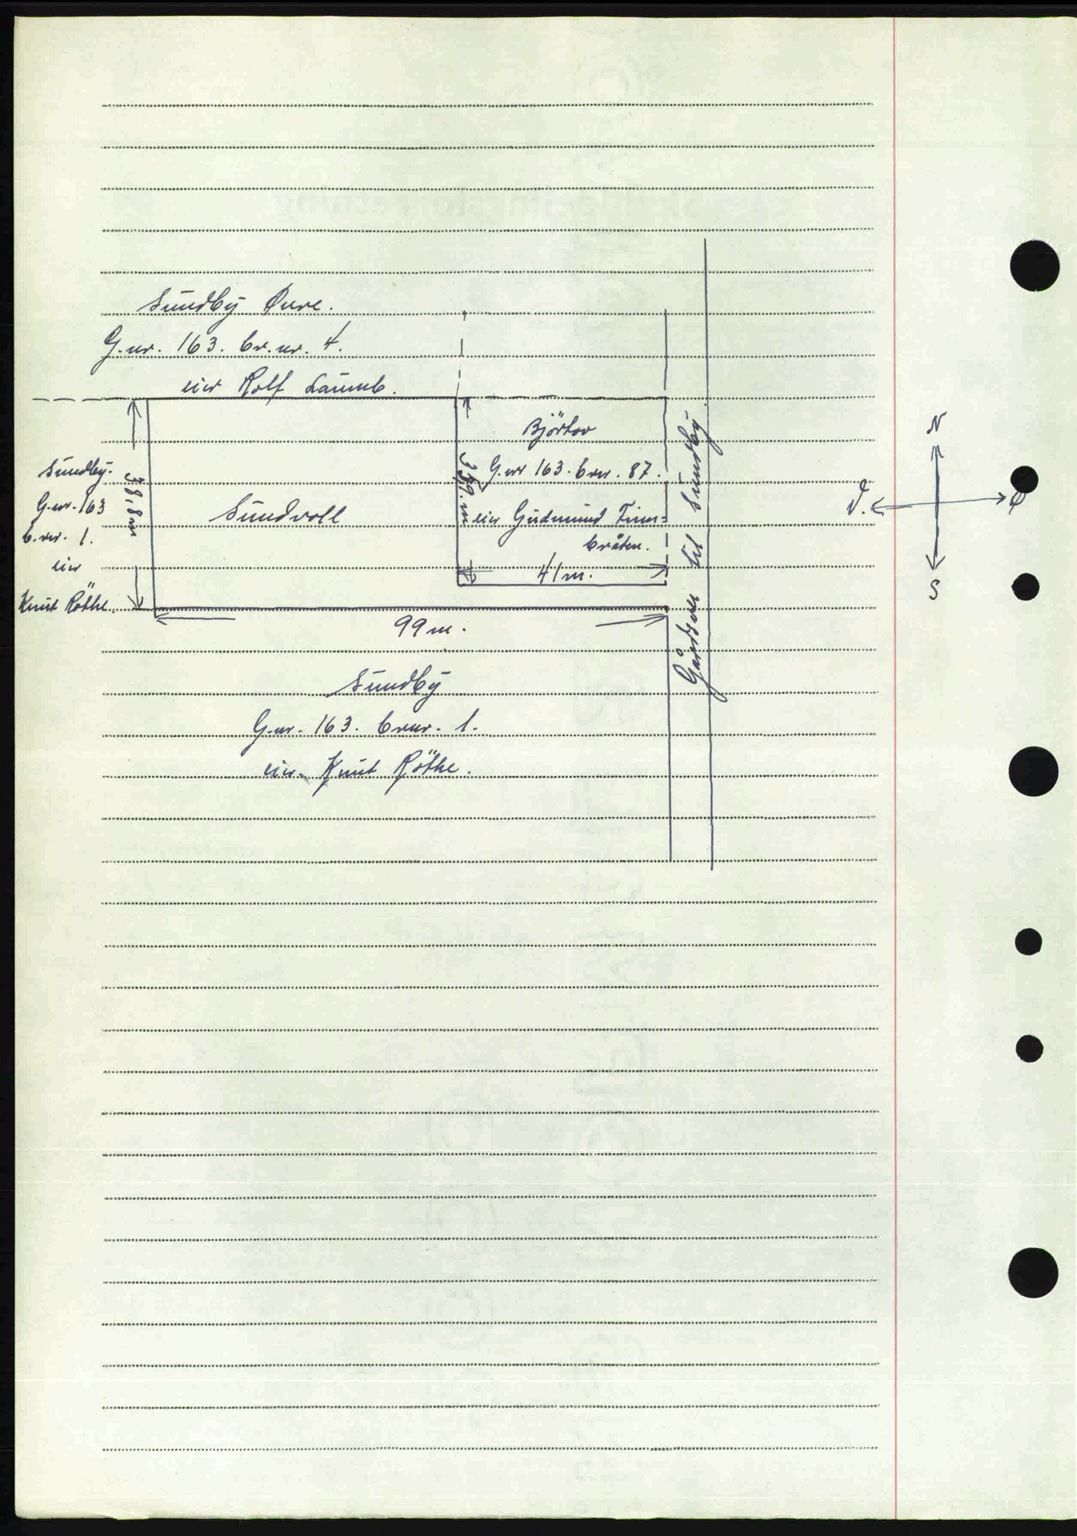 Sundby Øvre.
G.nr. 163. br.nr. 4.
eier Rolf Laumb.
Sundby.
G.nr. 163
b.nr. 1.
eier
Knut Röthe.
38,8 m
Sundvoll
Björtov
G.nr 163. bnr. 87.
eier Gudmund Finn=
bråten.
41 m.
99 m.
Gårdsvei til Sundby
Sundby
G.nr. 163. bnr. 1.
eier. Knut Röthe.
N
V.
Ø
S